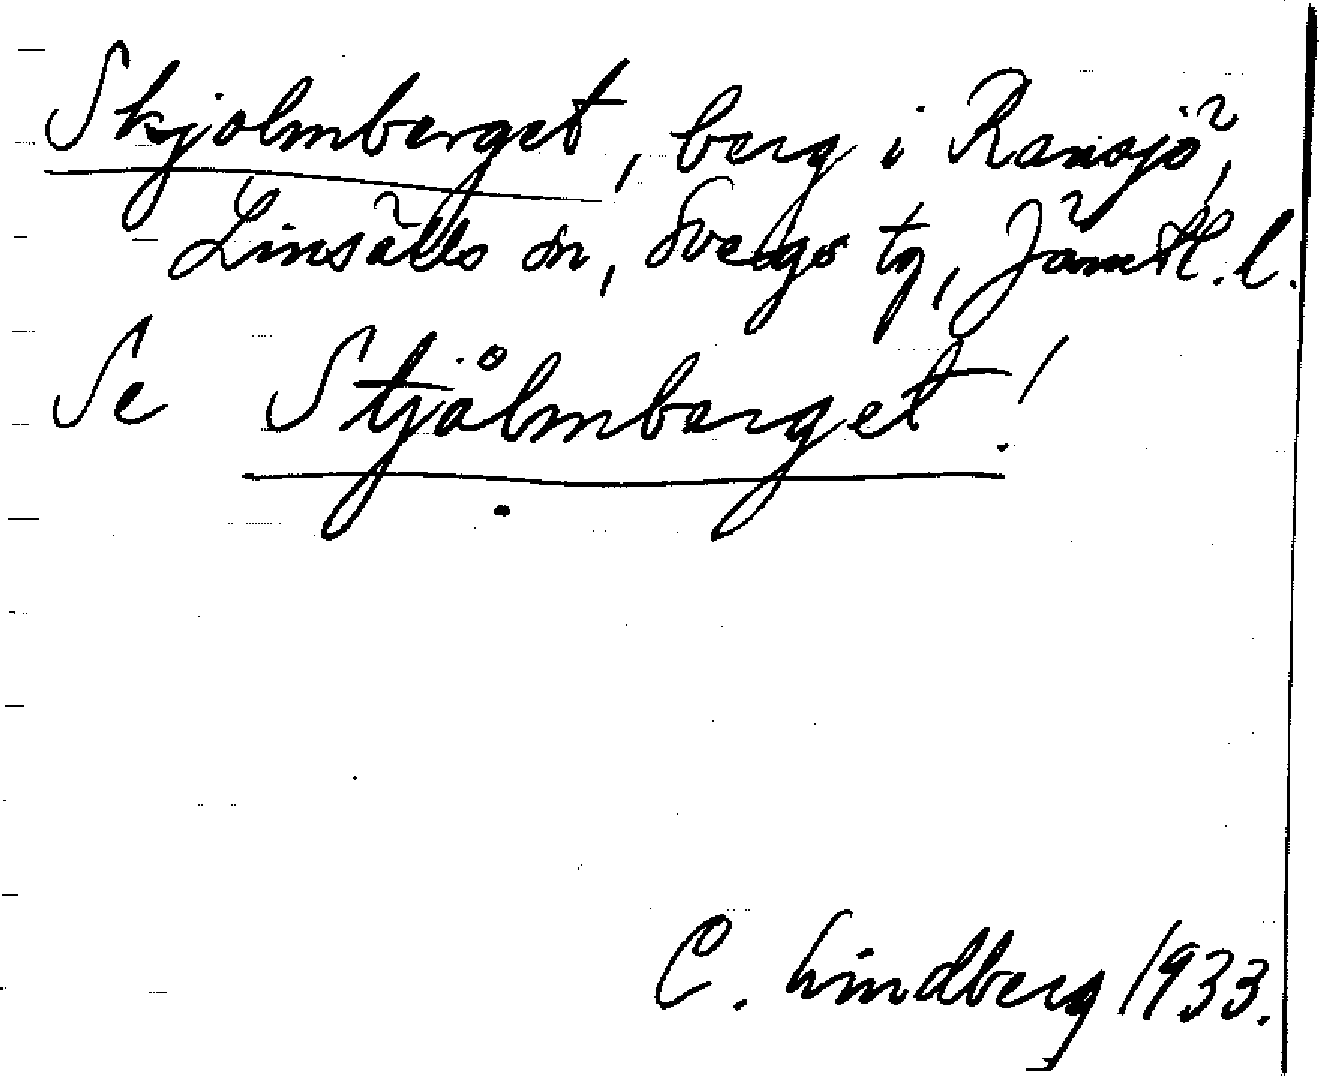 Skjolmberget, berg i Ransjö,
Linsälls sn, Svegs tg, Jämtl. l.
Se Stjålmberget!
C. Lindberg 1933.